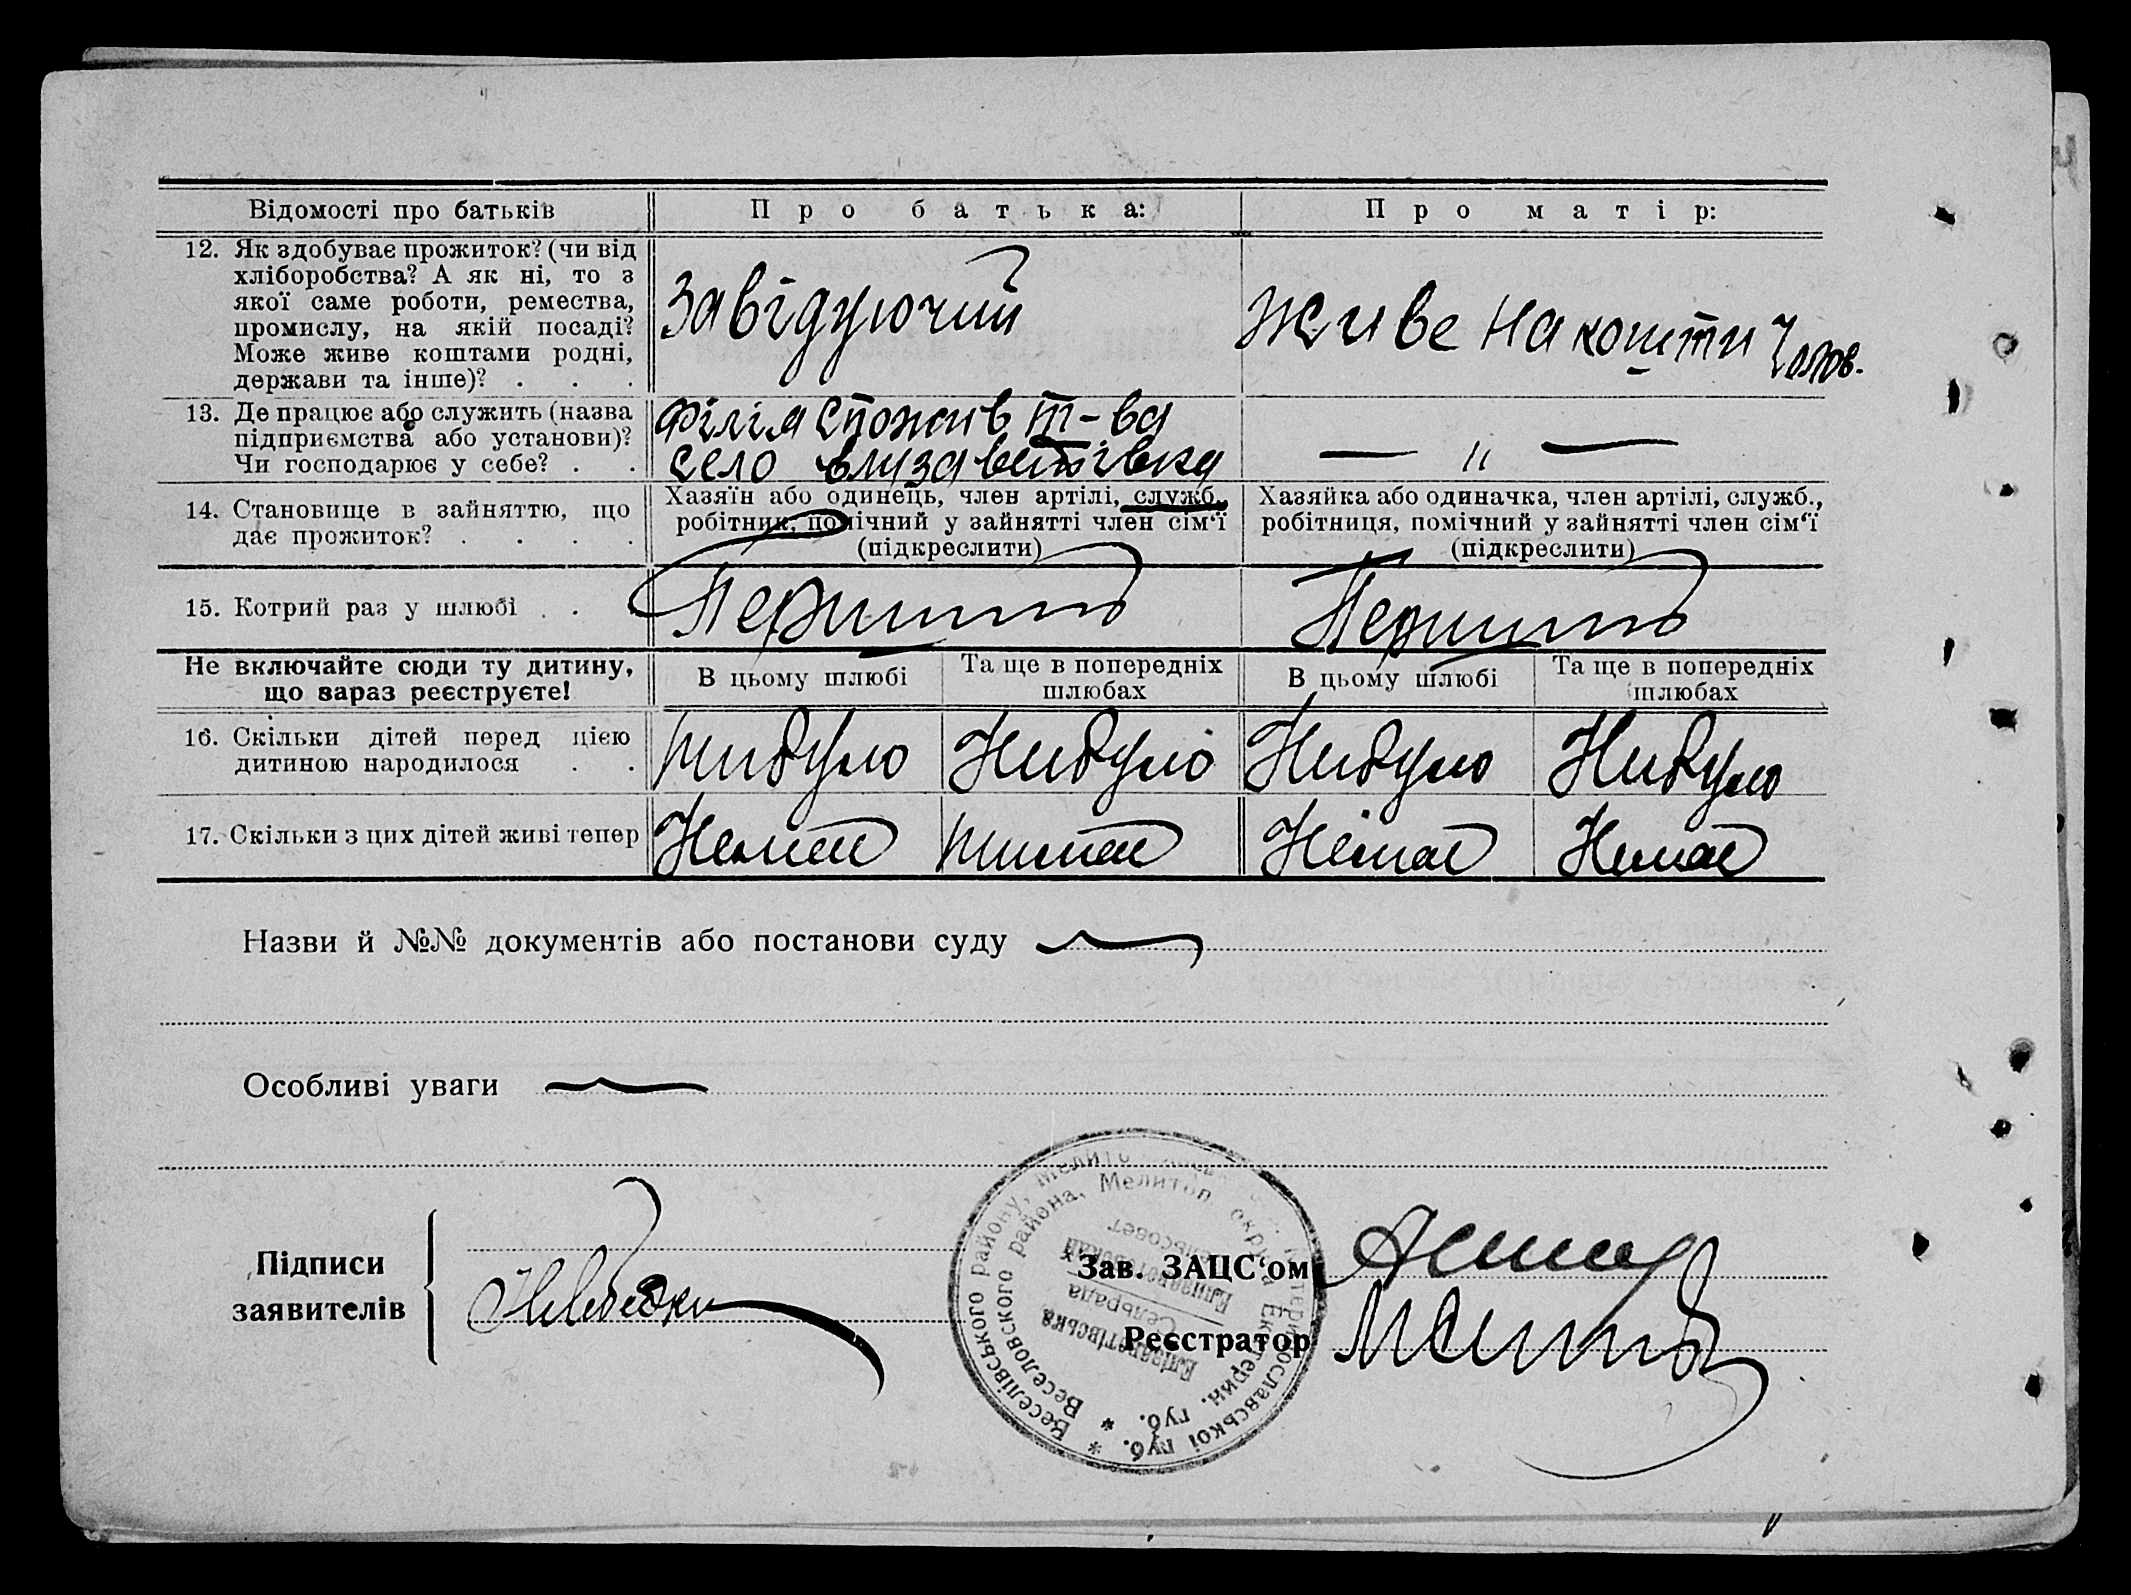 Відомості про батьків
Про батька:
Про матір:
12. Як здобуває прожиток? (чи від
хліборобства? А як ні, то з
якої саме роботи, ремества,
промислу, на якій посаді?
Може живе коштами родні,
держави та інше)? . . .
Завідуючий
Живе на кошти чолов.
13. Де працює або служить (назва
підприємства або установи)?
Чи господарює у себе? . .
Філія Спожив т-ва
село Єлизаветівка
— „ —
14. Становище в зайняттю, що
дає прожиток? . . . .
Хазяїн або одинець, член артілі, служб.,
робітник, помічний у зайнятті член сім'ї
(підкреслити)
Хазяйка або одиначка, член артілі, служб.,
робітниця, помічний у зайнятті член сім'ї
(підкреслити)
15. Котрий раз у шлюбі . .
Перший
Перший
Не включайте сюди ту дитину,
що зараз реєструєте!
В цьому шлюбі
Та ще в попередніх
шлюбах
В цьому шлюбі
Та ще в попередніх
шлюбах
16. Скільки дітей перед цією
дитиною народилося . .
Нибуло Нибуло Нибуло Нибуло
17. Скільки з цих дітей живі тепер
Немає Нимає Немає Немає
Назви й №№ документів або постанови суду
Особливі уваги
Підписи
заявителів
Зав. ЗАЦС'ом
Реєстратор
* Веселівського району, Мелито Катеринославської губ.
* Веселовского района, Мелитоп. округа Екатерин. губ.
Єлізаветівська
Сельрада